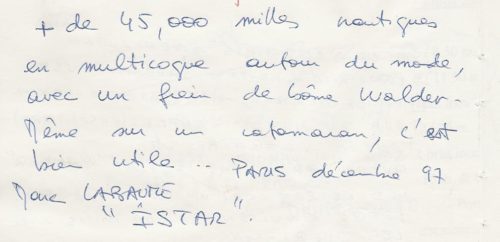 + de 45,000 milles nautiques
en multicoque autour du monde,
avec un frein de bôme Walder.
Même sur un catamaran, c'est
bien utile .. PARIS décembre 97
Marc LABAUME
"ISTAR".